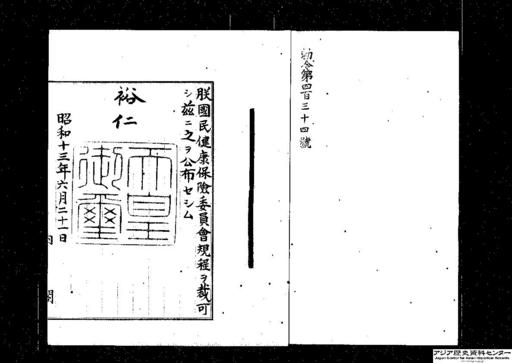 勅令第四百三十四號
朕國民健康保險委員會規程ヲ裁可
シ茲ニ之ヲ公布セシム
裕仁
天皇御璽
昭和十三年六月二十一日
内閣
アジア歴史資料センター
Japan Center for Asian Historical Records